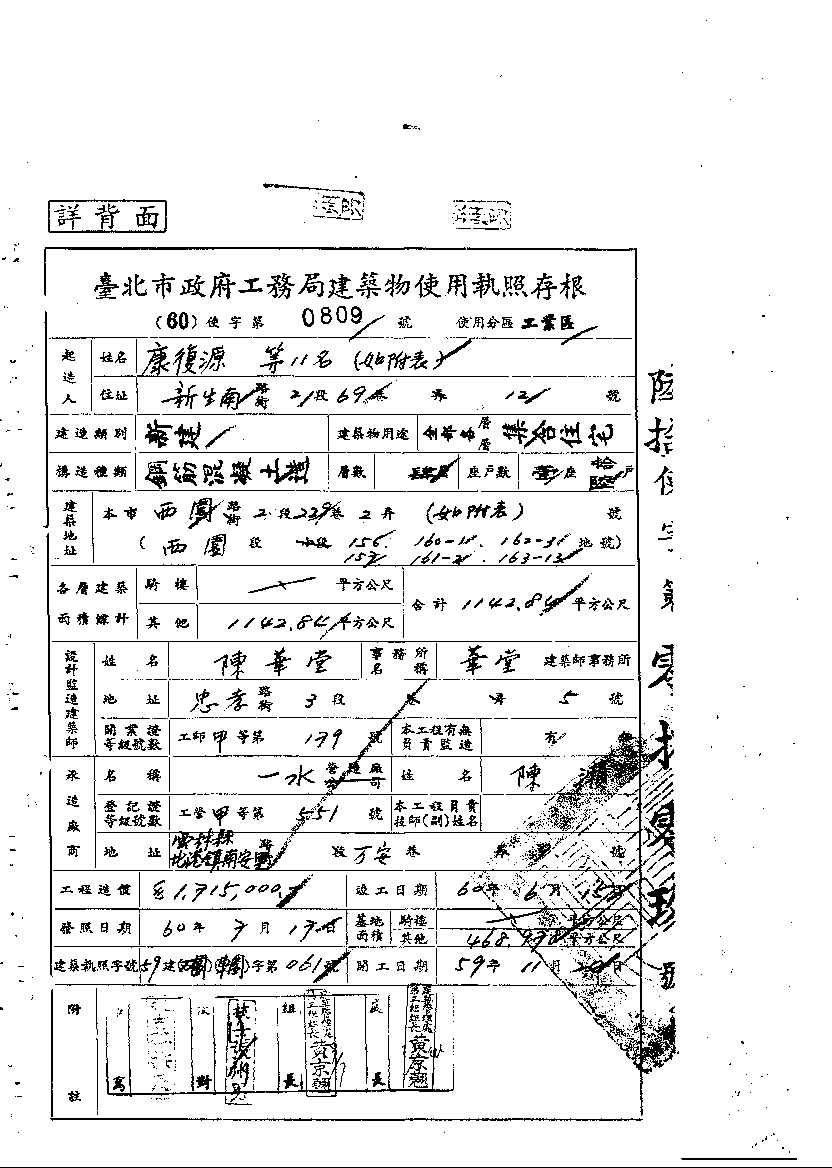 詳背面
臺北市政府工務局建築物使用執照存根
(60) 使字第 0809 號 使用分區 工業區
起造人 姓名 康復源 等11名 (如附表)
住址 新生南 路街 2 段 69 巷 弄 12 號
建造類別 新建 建築物用途 全部各層 集合住宅
構造種類 鋼筋混凝土造 層數 座戶數 座 拾陸 戶
建築地址 本市 西園 路街 2 段 229 巷 2 弄 (如附表) 號
(西園 段 小段 156. 160-1. 162-3 地號)
157 161-2. 163-13
各層建築面積總計 騎樓 平方公尺 合計 1142.84 平方公尺
其他 1142.84 平方公尺
設計監造建築師 姓名 陳華堂 事務所名稱 華堂 建築師事務所
地址 忠孝 路街 3 段 巷 弄 5 號
開業證等級號數 工師 甲 等第 139 號 本工程有無負責監造 有
承造廠商 名稱 一水 營造廠公司 姓名 陳
登記證等級號數 工營 甲 等第 551 號 本工程負責技師(副)姓名
地址 雲林縣北港鎮南安 路 段 万安 巷 弄 號
工程造價 1,715,000 竣工日期 60 年 6 月 15 日
發照日期 60 年 7 月 17 日 基地面積 騎樓 平方公尺
其他 468.938 平方公尺
建築執照字號 59 建 字第 061 號 開工日期 59 年 11 月 20 日
附註 校對 組長 黃京翹 處長 黃京翹
陸拾使字第零捌零玖號